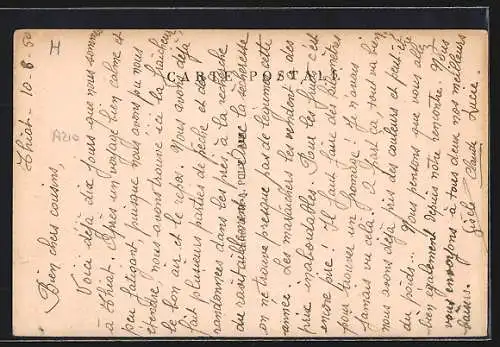 Thiat - 10-8-50
I
A210
CARTE POSTALE
Bien chers cousins,
Voici déjà dix jours que nous sommes
à Thiat. Après un voyage bien calme et
peu fatigant, puisque nous avons pu nous
étendre, nous avons trouvé ici la fraîcheur
le bon air et le repos. Nous avons déjà
fait plusieurs parties de pêche et des
randonnées dans les prés, à la recherche
du ravitaillement, avec la sécheresse
on ne trouve presque pas de légumes cette
année. Les maraîchers les vendent à des
prix inabordables. Pour les fruits c'est
encore pire! Il faut faire des kilomètres
pour trouver un fromage! Je n'avais
jamais vu celà! A part ça, tout va bien
nous avons déjà pris des couleurs et peut-être
du poids... Nous pensons que vous allez
bien également depuis notre rencontre. Nous
vous envoyons à tous deux nos meilleurs
baisers.
Lucie